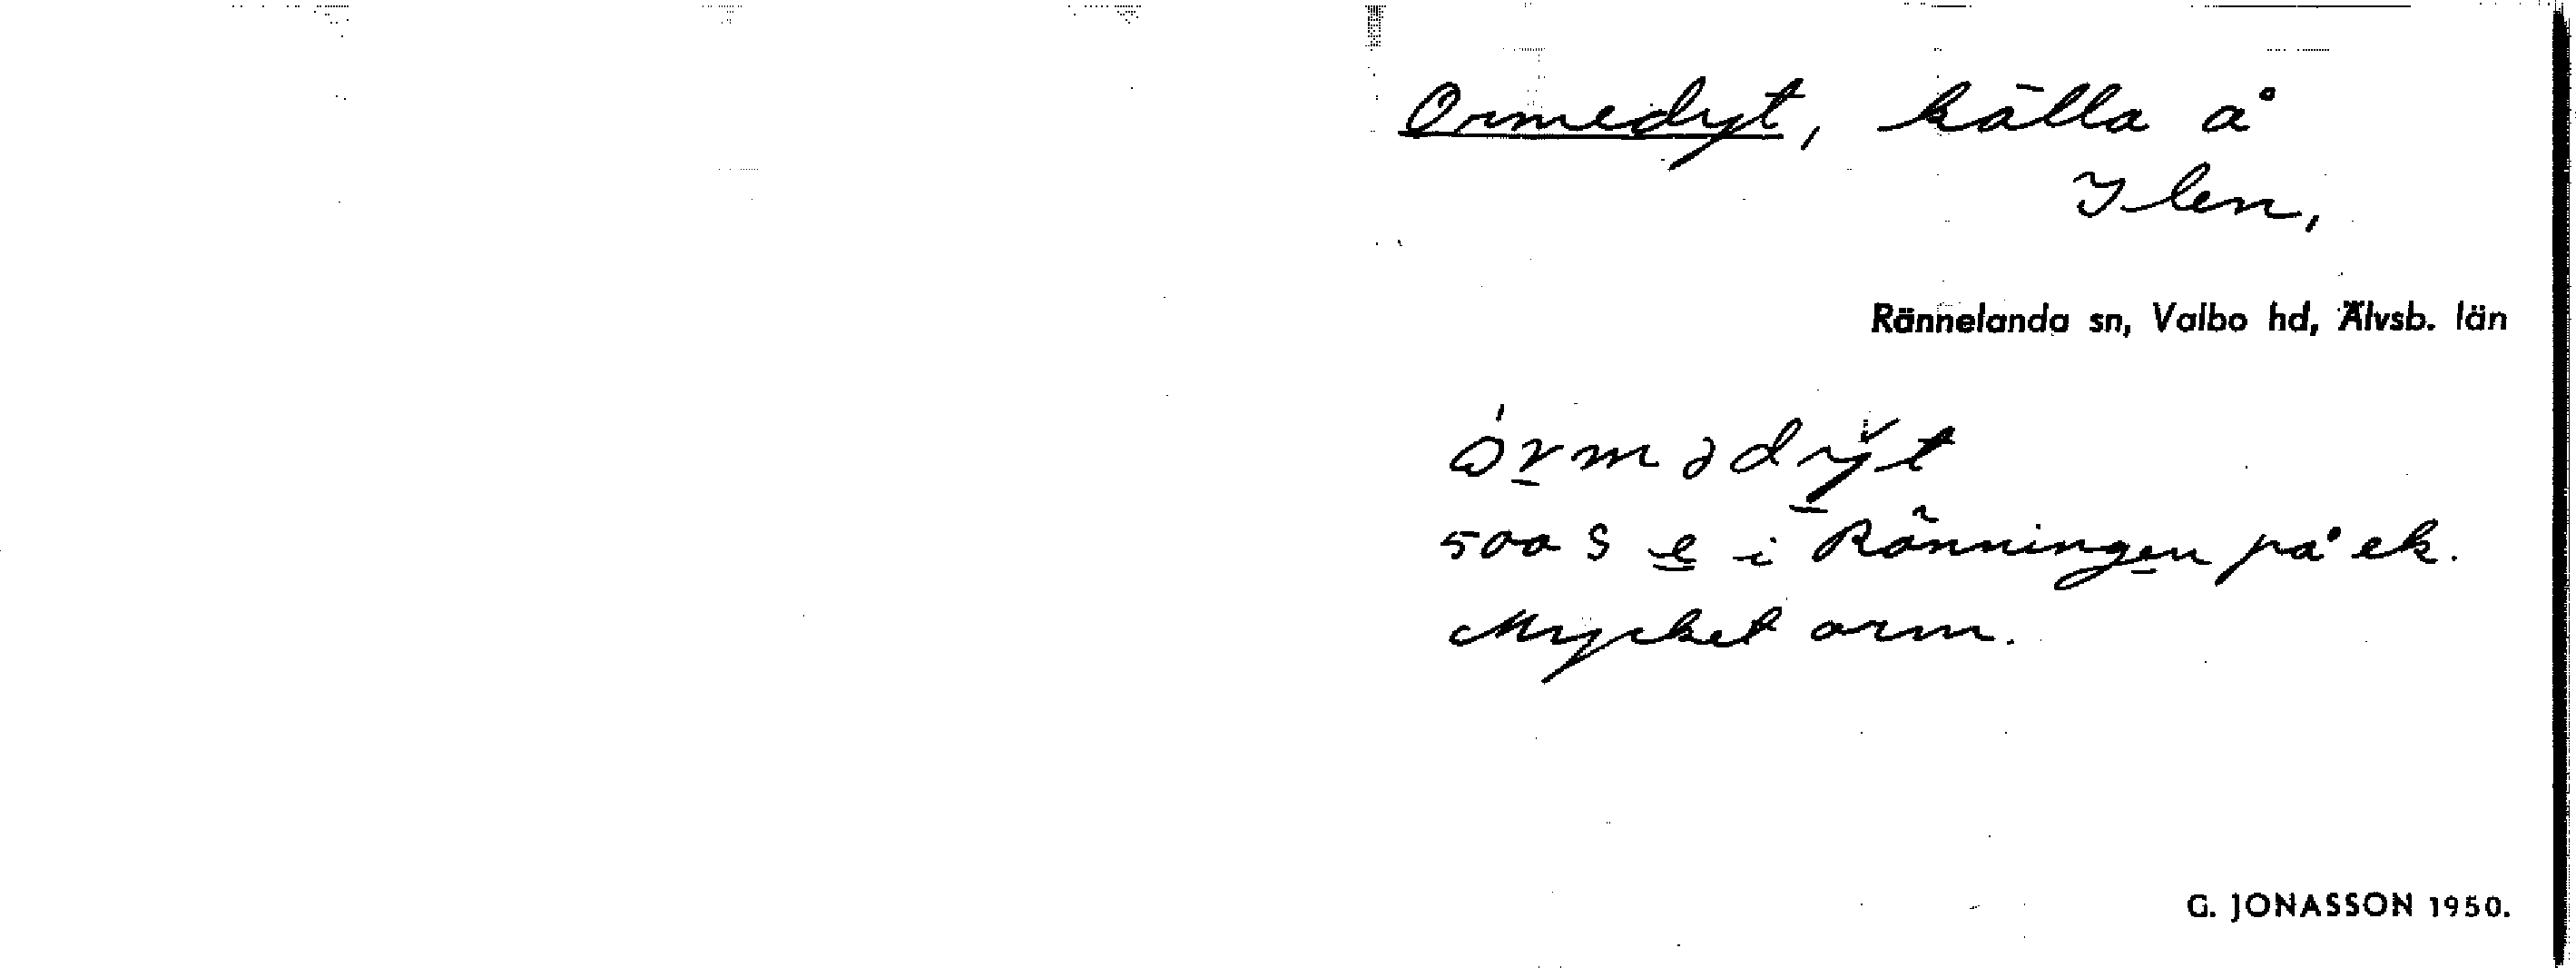 Ormedyt, källa å
Ilen,
Rännelanda sn, Valbo hd, Älvsb. län
ò́rmədy̆t
500 S e i Rönningen på ek.
Mycket orm.
G. JONASSON 1950.